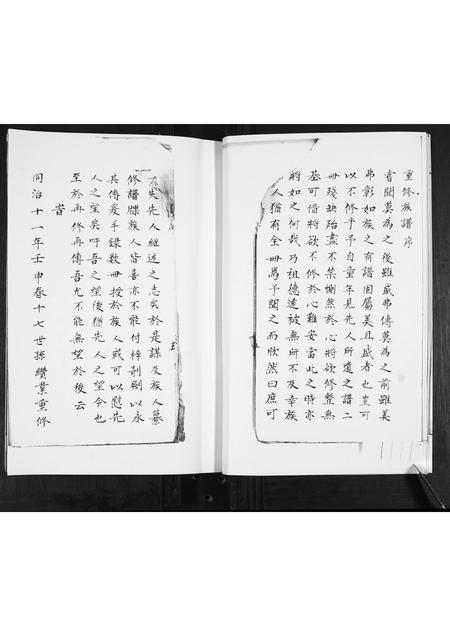 重修族譜序
嘗聞莫為之後雖盛弗傳莫為之前雖美
弗彰如族之有譜固屬美且盛者也豈可
以不修乎予自童年見先人所遺之譜二
冊殘缺殆盡不禁惻然於心將欲修整無
基可借將欲不修於心難安當此之時亦
將如之何哉乃祖德遠被無所不及幸族
人猶有全冊焉予聞之而欣然曰庶可
失先人繼述之志矣於是謀及族人纂
修譜牒族人皆喜亦不能付梓剞劂以永
其傳爰手錄數冊授於族人或可以慰先
人之望矣吁吾之望後猶先人之望今也
至於再修再傳吾尤不能無望於後云
旹
同治十一年壬申春十七世孫纘業重修
五